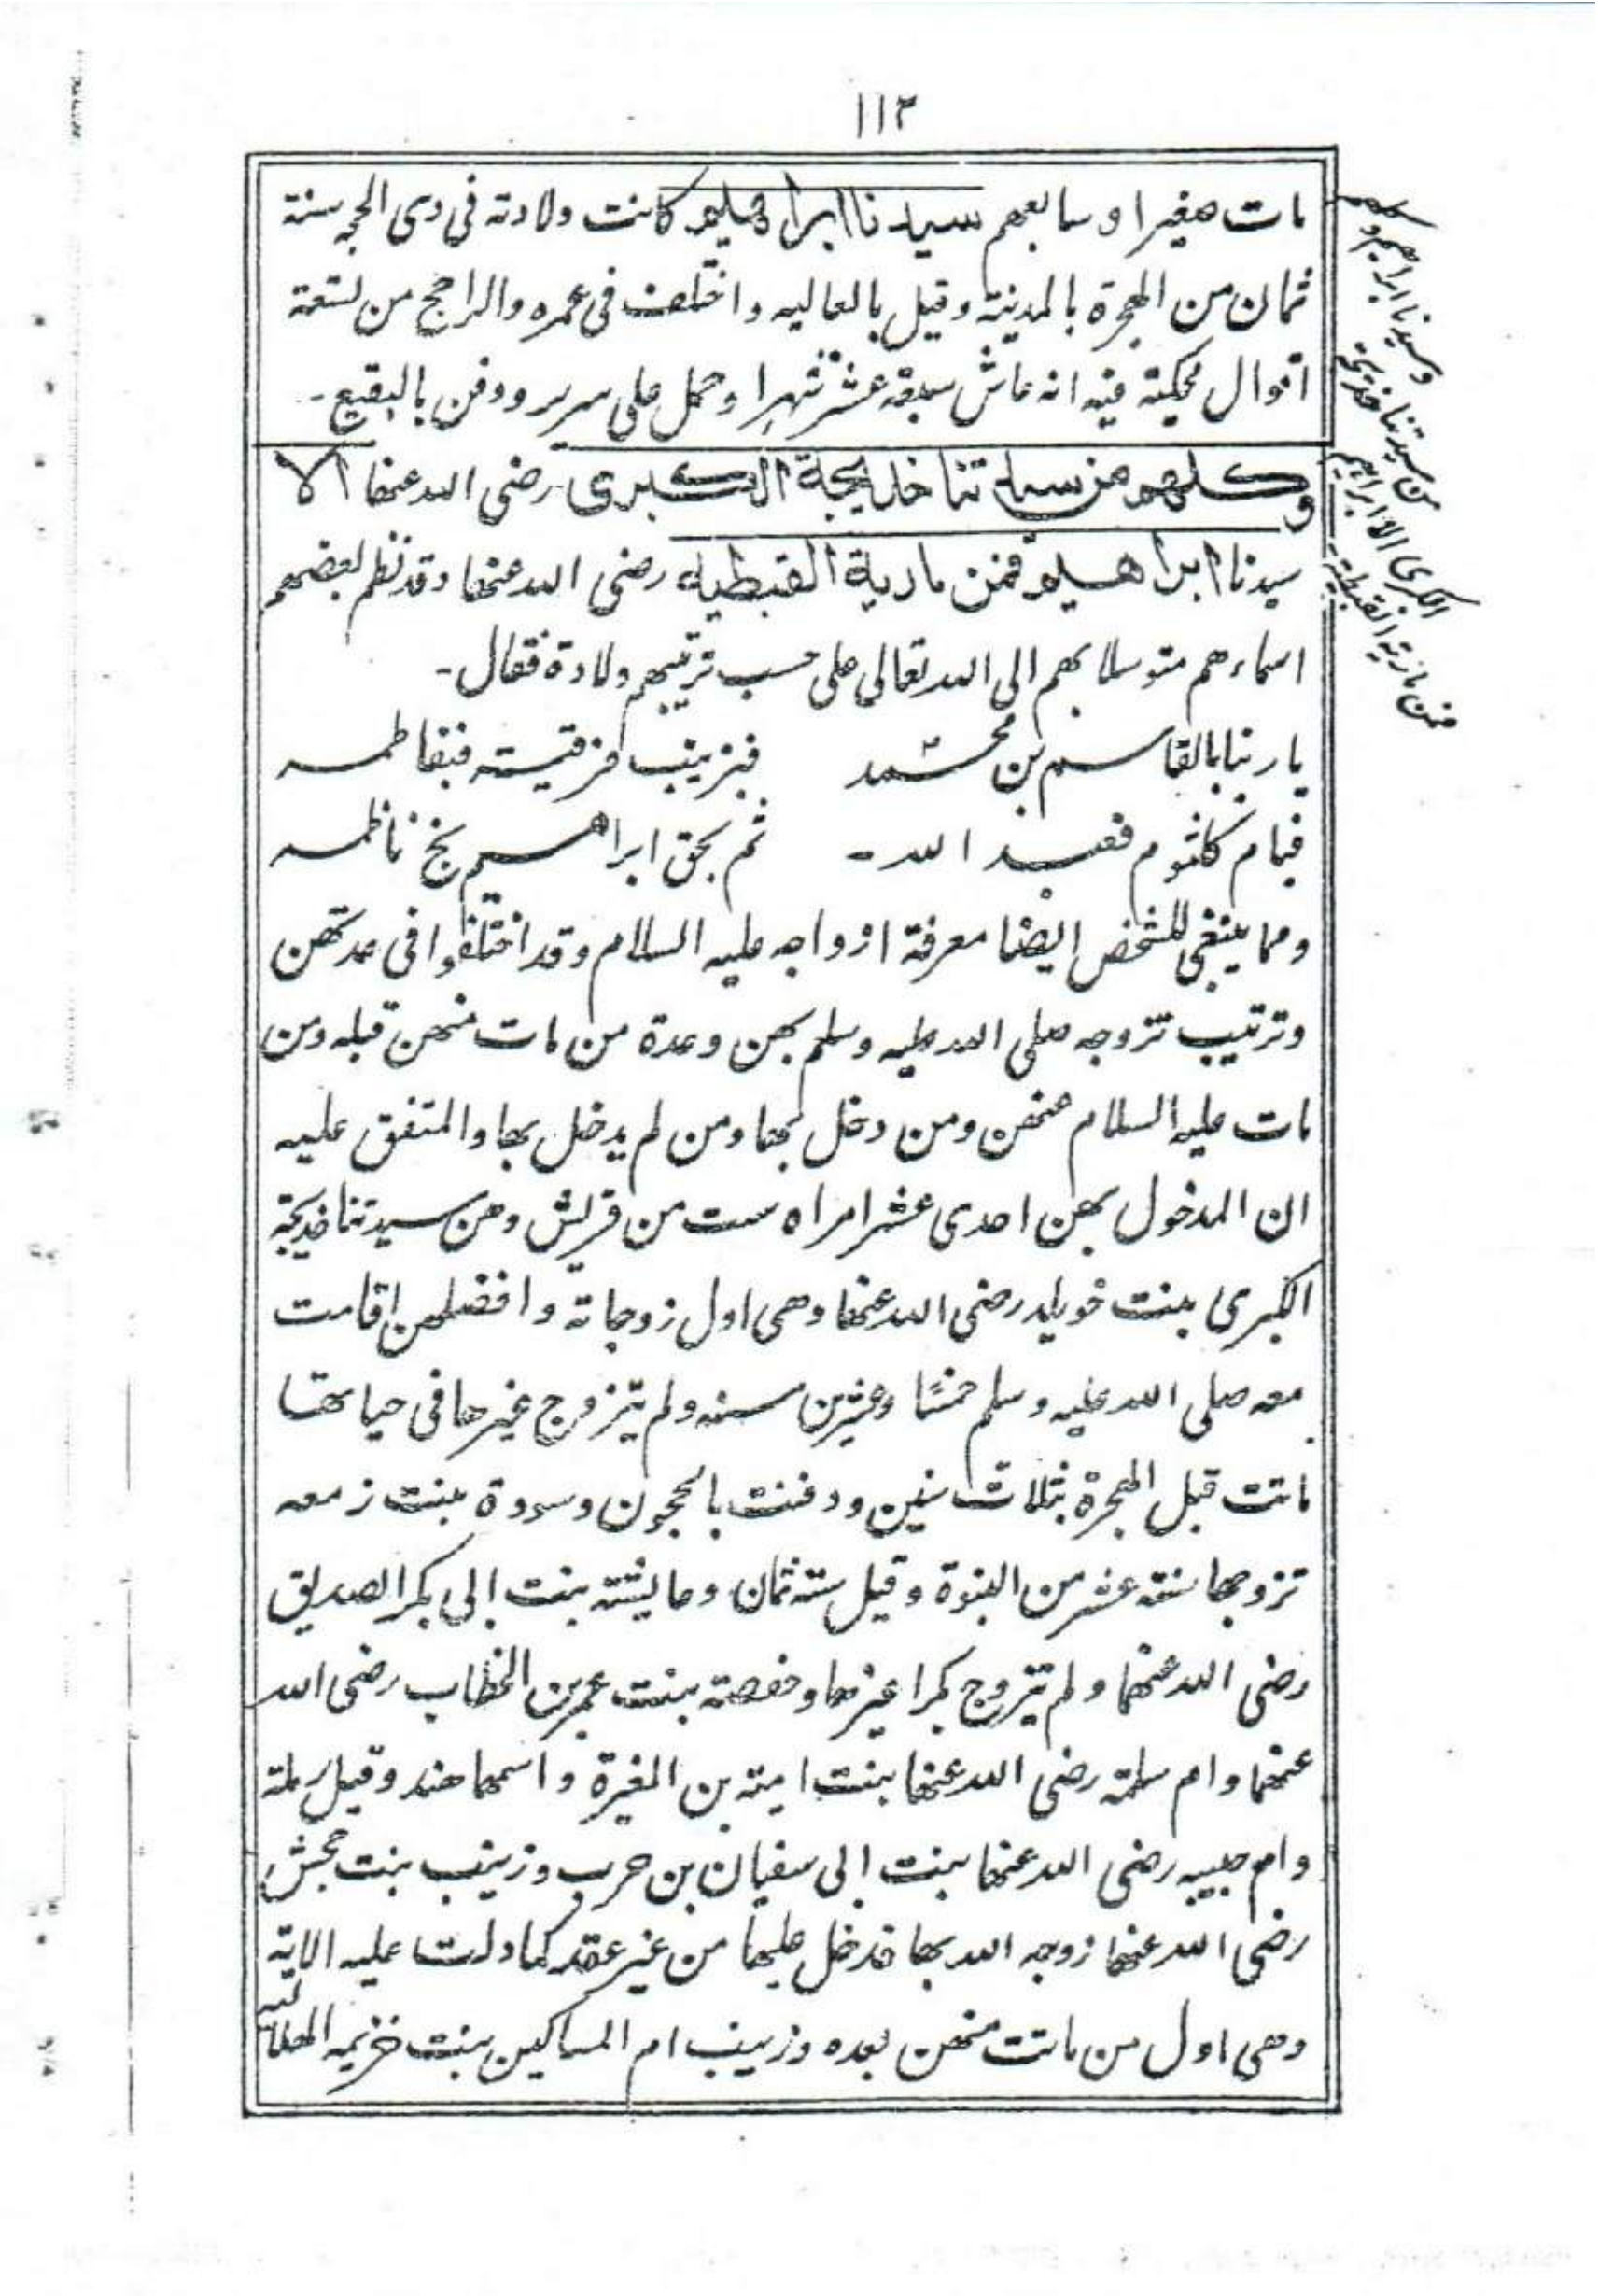 ١١٢
مات صغيرا وسابعهم سيدنا ابراهيم كانت ولادته في ذى الحجه سنة
ثمان من الهجرة بالمدينة وقيل بالعاليه واختلف فى عمره والراجح من تسعة
اقوال محكية فيه انه عاش سبعة عشر شهرا وحمل على سرير ودفن بالبقيع۔
وكلهم من سيدتنا خديجة الكبرى رضى الله عنها الا
سيدنا ابراهيم فمن مارية القبطيه رضى الله عنها وقد نظم بعضهم
اسماءهم متوسلا بهم الى الله تعالى على حسب ترتيبهم ولادة فقال۔
يا ربنا بالقاسم بن محمد فبزينب فرقية فبفاطمه
فبام كلثوم فعبد الله۔ ثم بحق ابراهيم نج ناظمه
ومما ينبغى للشخص ايضا معرفة ازواجه عليه السلام وقد اختلفوا فى عدتهن
وترتيب تزوجه صلى الله عليه وسلم بهن وعدة من مات منهن قبله ومن
مات عليه السلام عنهن ومن دخل بها ومن لم يدخل بها والمتفق عليه
ان المدخول بهن احدى عشر امراه ست من قريش وهن سيدتنا خديجة
الكبرى بنت خويلد رضى الله عنها وهى اول زوجاته وافضلهن اقامت
معه صلى الله عليه وسلم خمسًا وعشرين سنه ولم يتزوج غيرها فى حياتها
ماتت قبل الهجرة بثلاث سنين ودفنت بالحجون وسودة بنت زمعه
تزوجها سنة عشر من النبوة وقيل سنة ثمان وعايشة بنت ابى بكر الصديق
رضى الله عنهما ولم يتزوج بكرا غيرها وحفصة بنت عمر بن الخطاب رضى الله
عنهما وام سلمة رضى الله عنها بنت امية بن المغيرة واسمها هند وقيل رملة
وام حبيبه رضى الله عنها بنت ابى سفيان بن حرب وزينب بنت جحش
رضى الله عنها زوجه الله بها فدخل عليها من غير عقد كما دلت عليه الاية
وهى اول من ماتت منهن بعده وزينب ام المساكين بنت خزيمه الهلالية
وسيدنا ابراهيم وكلهم
من سيدتنا خديجة
الكبرى الا ابراهيم
فمن مارية القبطية